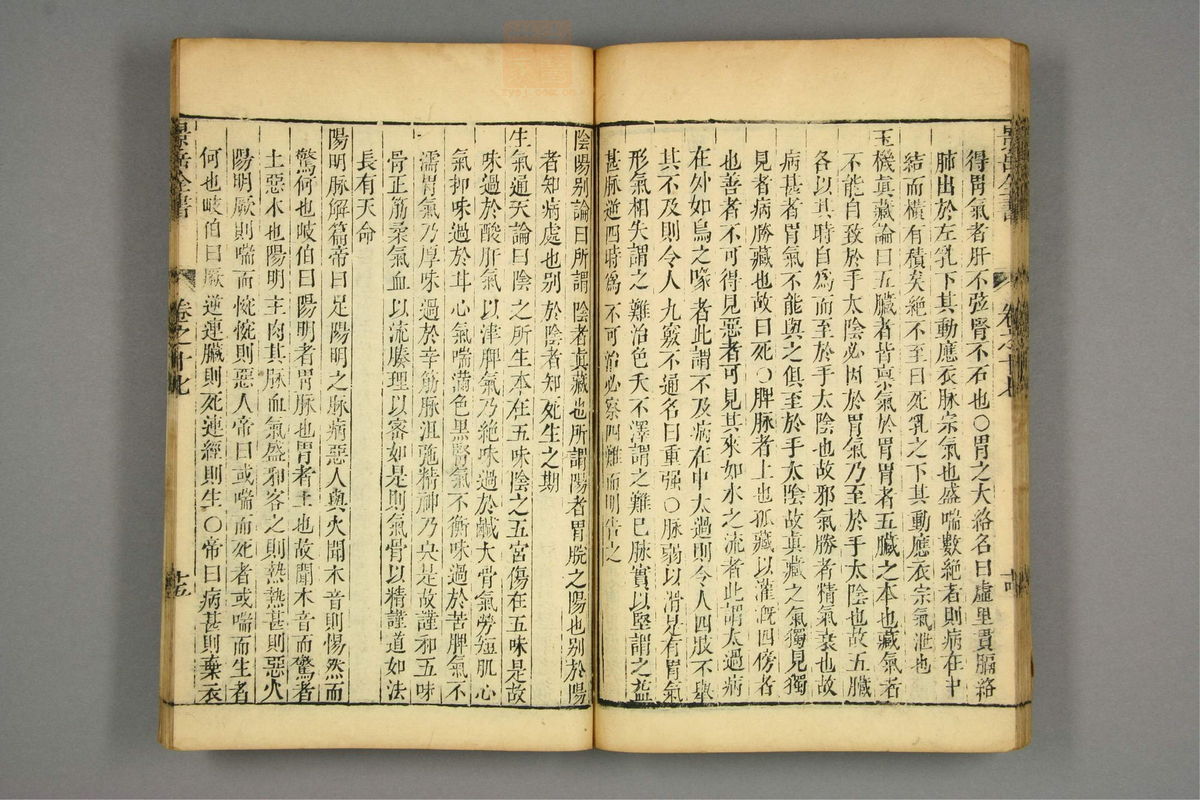 得胃氣者肝不弦腎不石也〇胃之大絡名曰虛里貫膈絡
肺出於左乳下其動應衣脉宗氣也盛喘數絶者則病在中
結而橫有積矣絶不至曰死乳之下其動應衣宗氣泄也
玉機眞藏論曰五臟者皆禀氣於胃胃者五臟之本也藏氣者
不能自致於手太陰必因於胃氣乃至於手太陰也故五臟
各以其時自爲而至於手太陰也故邪氣勝者精氣衰也故
病甚者胃氣不能與之俱至於手太陰故眞藏之氣獨見獨
見者病勝藏也故曰死〇脾脉者土也孤藏以灌漑四傍者
也善者不可得見惡者可見其來如水之流者此謂太過病
在外如鳥之喙者此謂不及病在中太過則令人四肢不舉
其不及則令人九竅不通名曰重强〇脉弱以滑是有胃氣
形氣相失謂之難治色夭不澤謂之難已脉實以堅謂之益
甚脉逆四時爲不可治必察四難而明告之
景岳全書
卷之十七
陰陽别論曰所謂陰者眞藏也所謂陽者胃脘之陽也别於陽
者知病處也别於陰者知死生之期
生氣通天論曰陰之所生本在五味陰之五宮傷在五味是故
味過於酸肝氣以津脾氣乃絶味過於鹹大骨氣勞短肌心
氣抑味過於甘心氣喘滿色黑腎氣不衡味過於苦脾氣不
濡胃氣乃厚味過於辛筋脉沮弛精神乃央是故謹和五味
骨正筋柔氣血以流腠理以密如是則氣骨以精謹道如法
長有天命
陽明脉解篇帝曰足陽明之脉病惡人與火聞木音則惕然而
驚何也岐伯曰陽明者胃脉也胃者土也故聞木音而驚者
土惡木也陽明主肉其脉血氣盛邪客之則熱熱甚則惡火
陽明厥則喘而惋惋則惡人帝曰或喘而死者或喘而生者
何也岐伯曰厥逆連臟則死連經則生〇帝曰病甚則棄衣
景岳全書
卷之十七